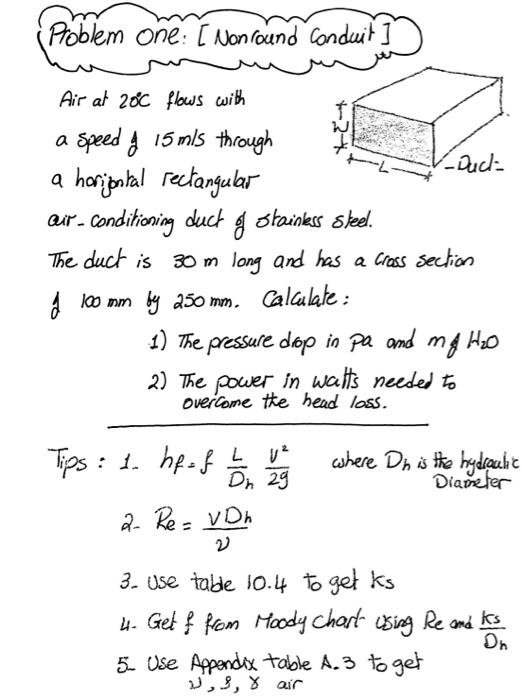 Problem one: [Nonround Conduit]
Air at 20°C flows with
a speed of 15 m/s through
a horizontal rectangular
air-conditioning duct of stainless steel.
The duct is 30 m long and has a cross section
of 100 mm by 250 mm. Calculate:
W
L
-Duct-
1) The pressure drop in Pa and m of H2O
2) The power in watts needed to
overcome the head loss.
Tips: 1- hf = f L/Dh V²/2g where Dh is the hydraulic
Diameter
2- Re = VDh/ν
3- Use table 10.4 to get ks
4- Get f from Moody chart using Re and ks/Dh
5- Use Appendix table A.3 to get
ν, ρ, γ air